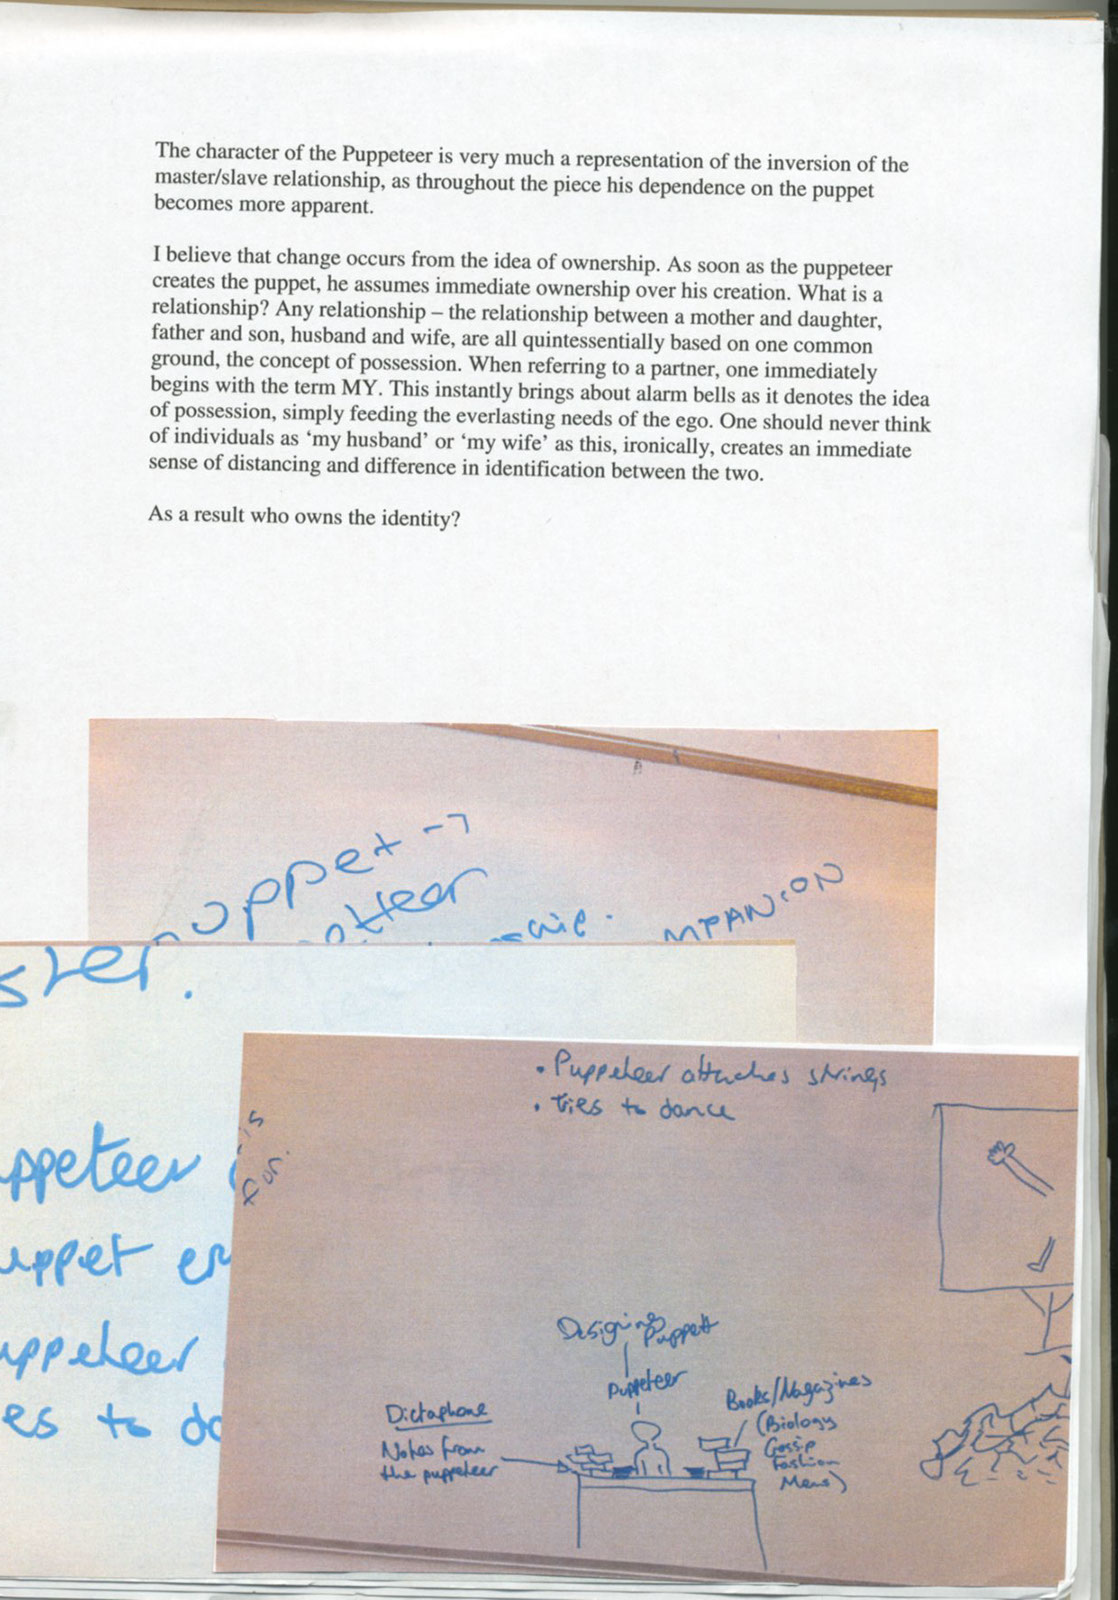 The character of the Puppeteer is very much a representation of the inversion of the
master/slave relationship, as throughout the piece his dependence on the puppet
becomes more apparent.
I believe that change occurs from the idea of ownership. As soon as the puppeteer
creates the puppet, he assumes immediate ownership over his creation. What is a
relationship? Any relationship – the relationship between a mother and daughter,
father and son, husband and wife, are all quintessentially based on one common
ground, the concept of possession. When referring to a partner, one immediately
begins with the term MY. This instantly brings about alarm bells as it denotes the idea
of possession, simply feeding the everlasting needs of the ego. One should never think
of individuals as ‘my husband’ or ‘my wife’ as this, ironically, creates an immediate
sense of distancing and difference in identification between the two.
As a result who owns the identity?
uppet →
tteer
MPANION
ster.
ppeteer
uppet en
uppeteer
es to do
is
for.
• Puppeteer attaches strings
• Ties to dance
Designing
Puppet
Puppeteer
Dictaphone
Notes from
the puppeteer
Books/Magazines
(Biology
Gossip
Fashion
Mens)